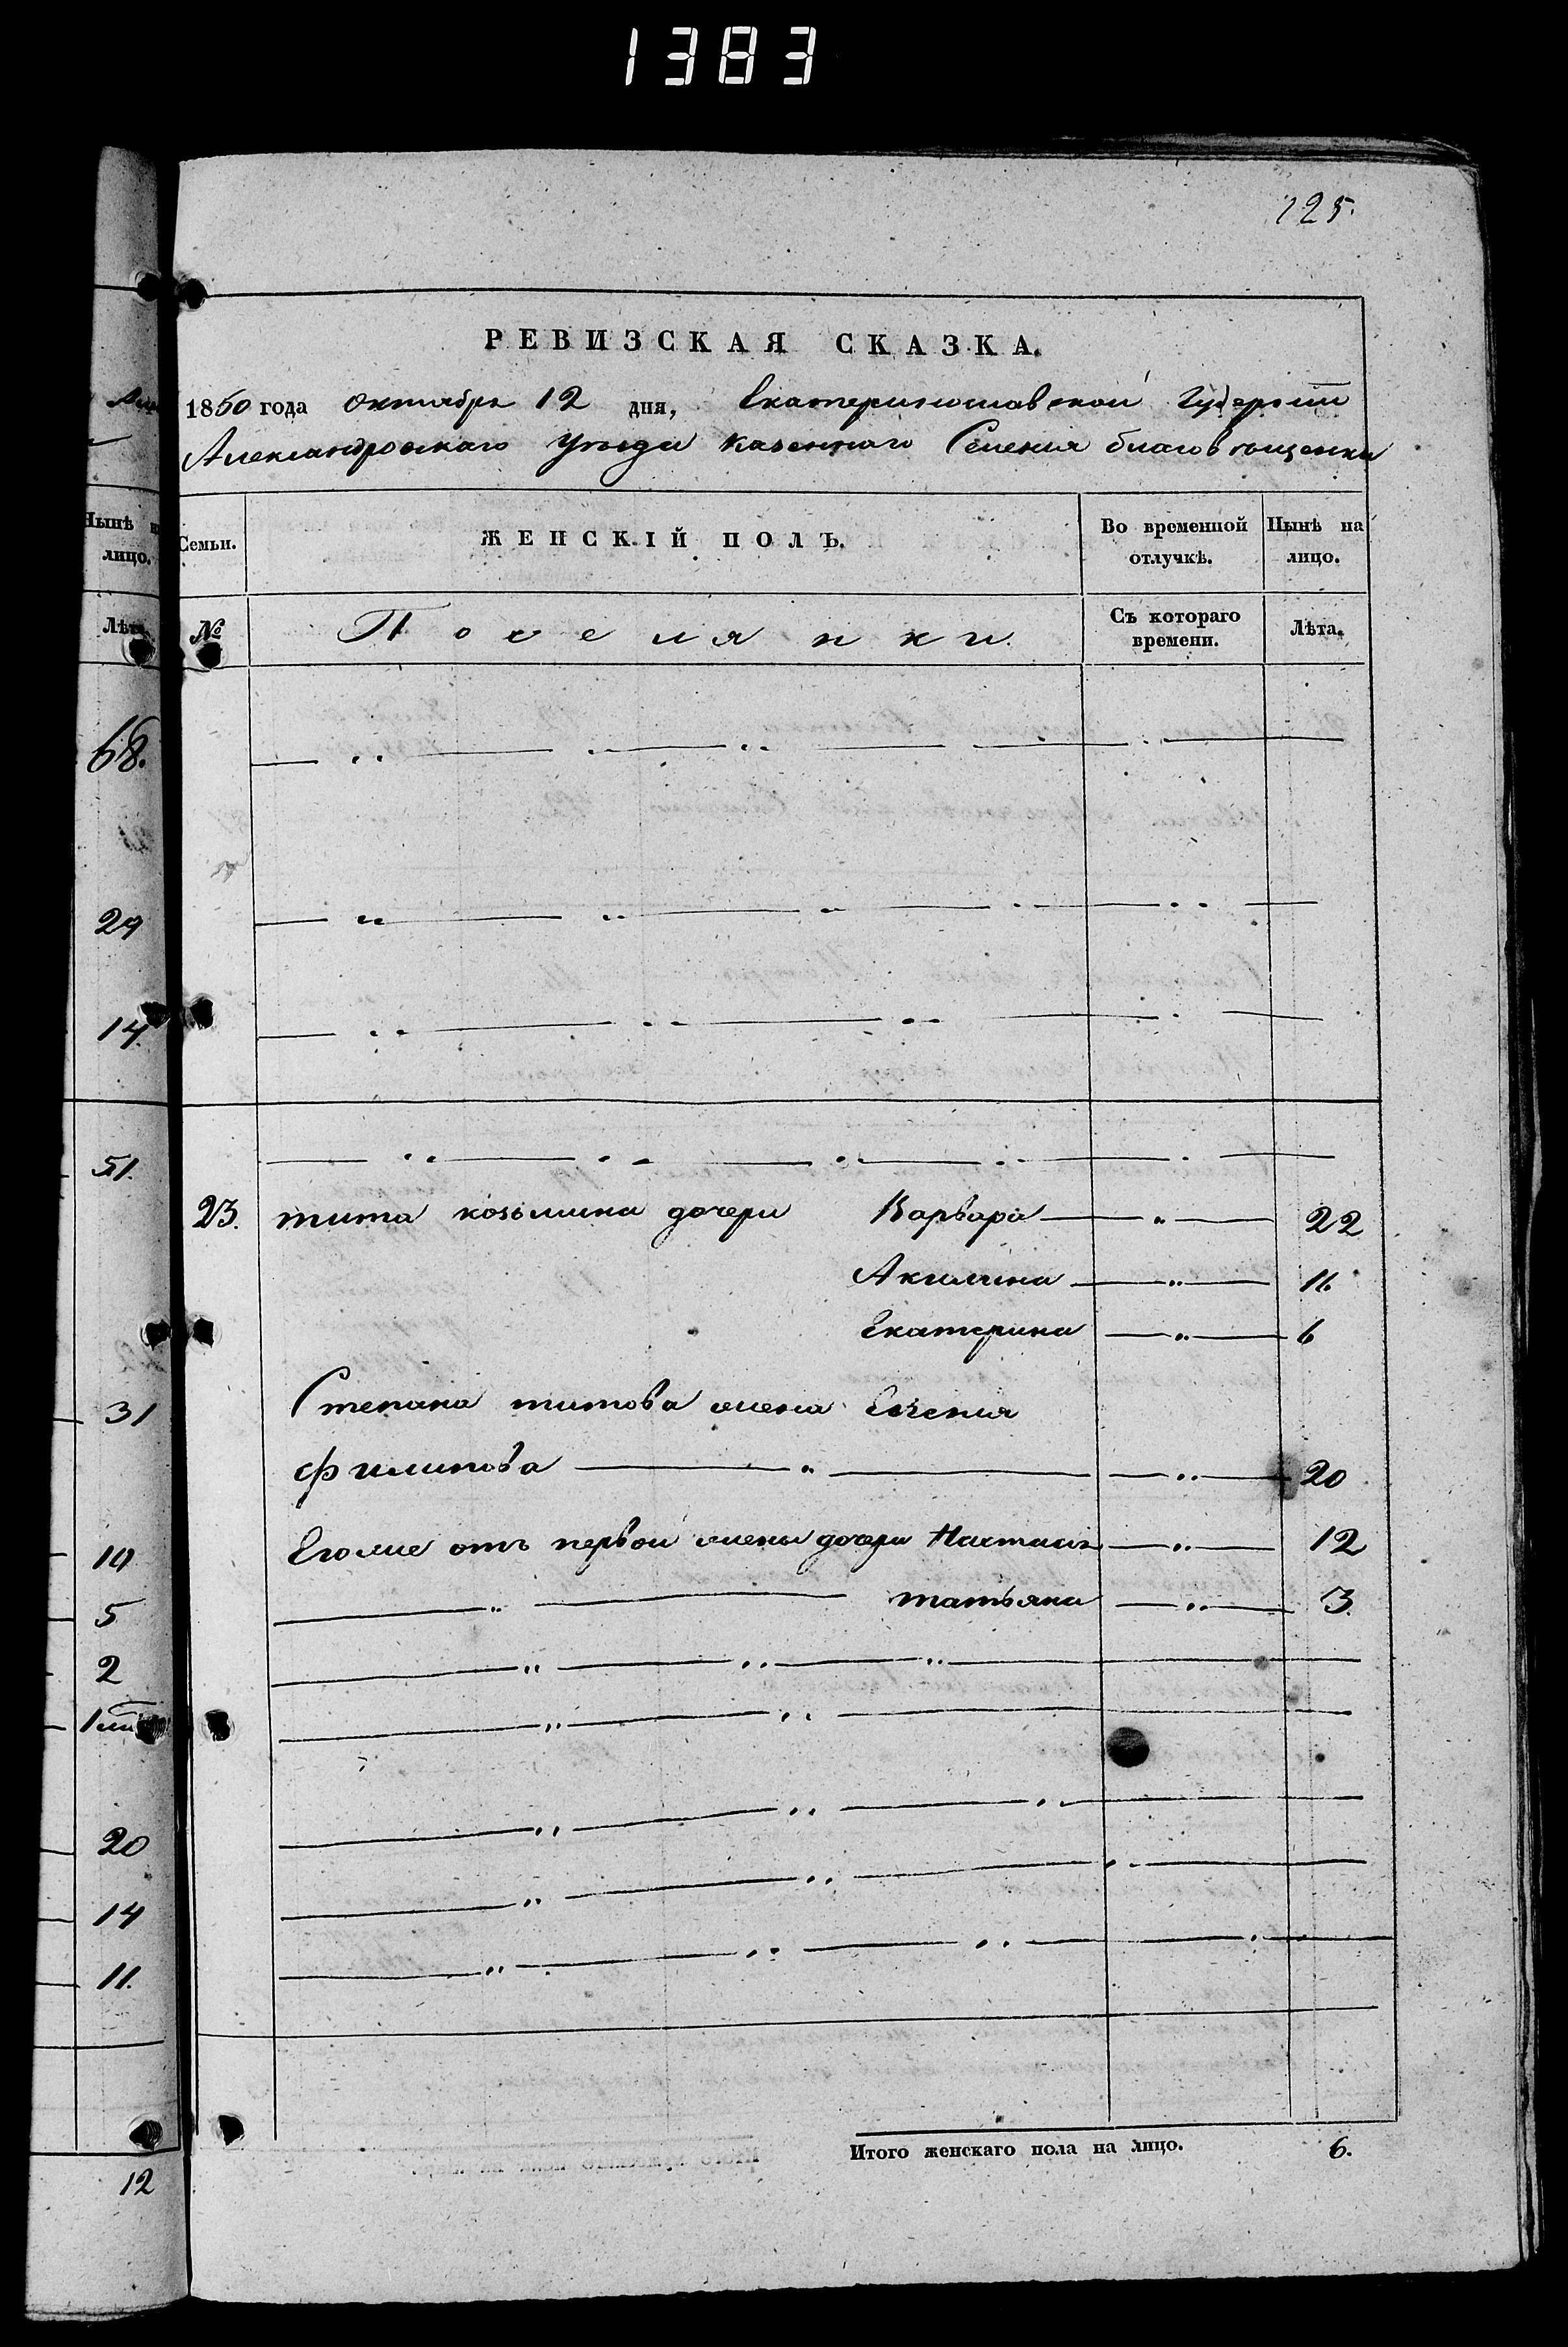 1383
125.
РЕВИЗСКАЯ СКАЗКА.
1850 года октября 12 дня, Екатеринославской Губернии
Александровскаго Уѣзда казеннаго Селенія благовѣщенки
Семьи. ЖЕНСКІЙ ПОЛЪ. Во временной отлучкѣ. Нынѣ на лицо.
№ Поселянки. Съ котораго времени. Лѣта.
23. тита козьмина дочери Варвара — „ — 22
Акилина — „ — 11.
Екатерина — „ — 6
Степана титова жена Евгения
филипова — „ — „ — 20
Егоже отъ первой жены дочери Настасья — „ — 12
— „ — татьяна — „ — 3.
Итого женскаго пола на лицо. 6.
Нынѣ
лицо.
Лѣта
68.
29
14.
51.
31
19
5
2
20
14
11.
12